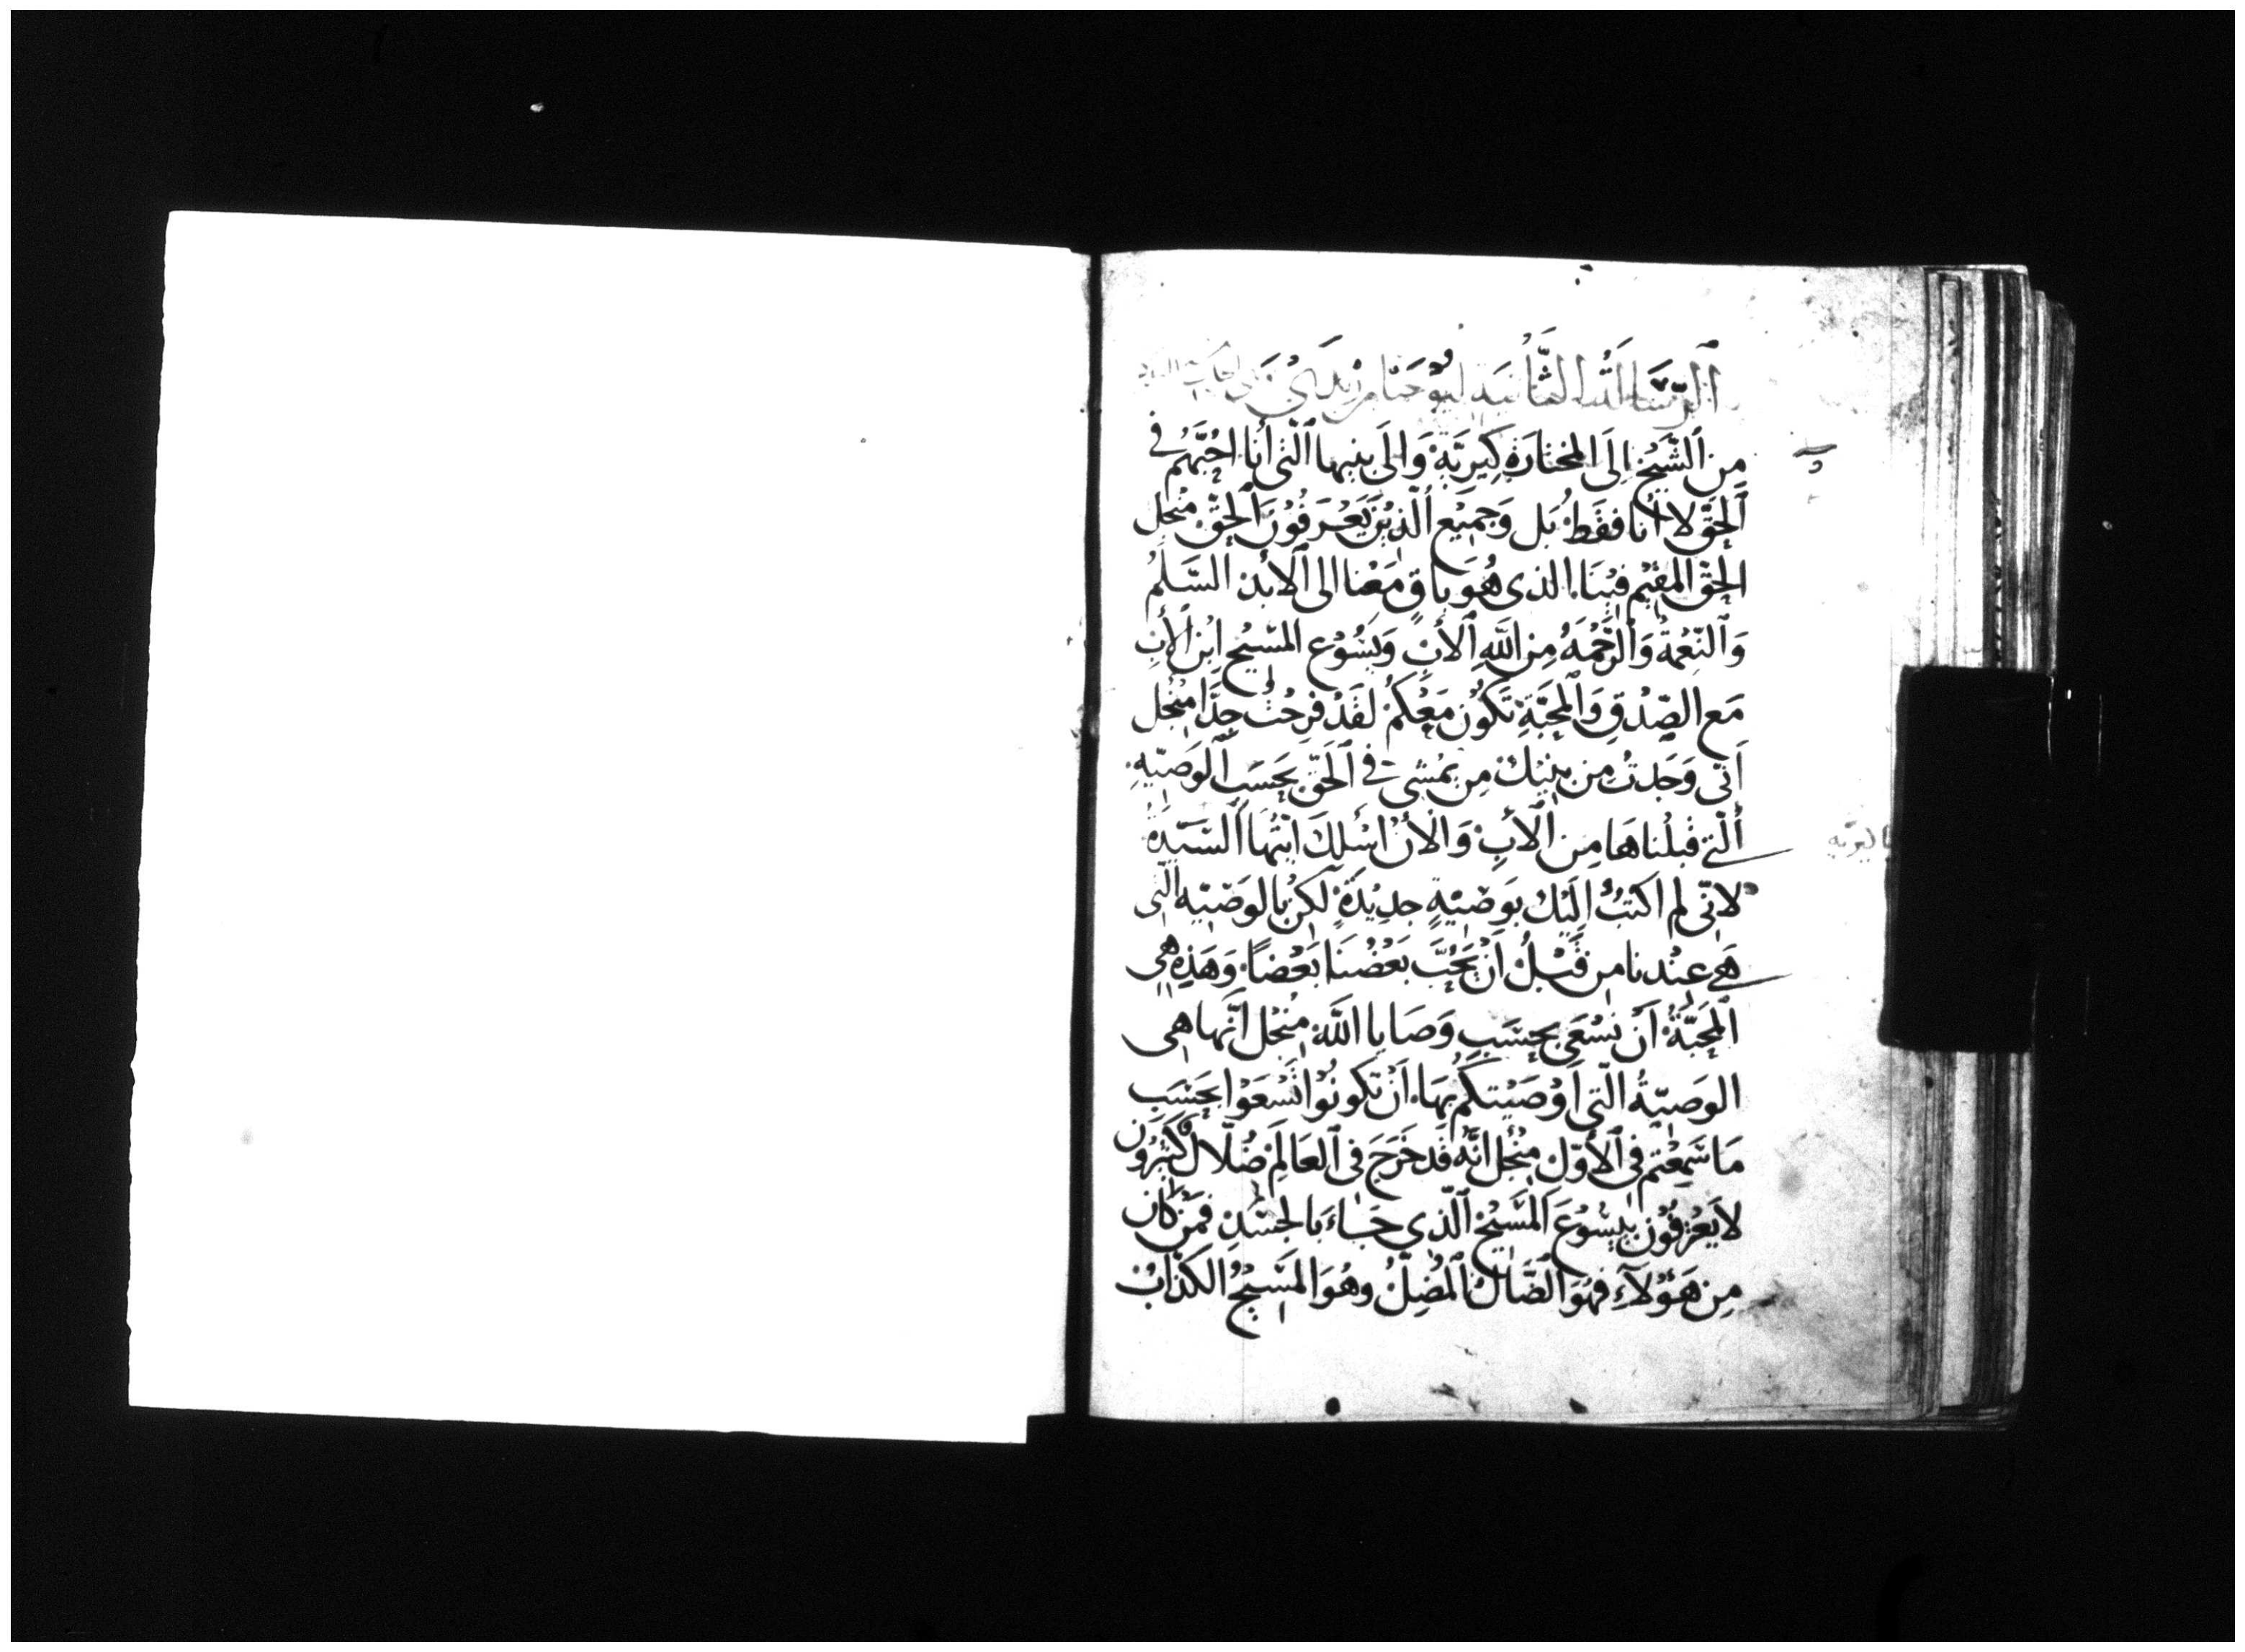 اَلرِّسَالَةُ الثَّانِيَة لِيُوْحَنَّا بن زَبَدَي
مِن اَلشَّيْخِ اِلَى المختارَةِ كِيرِيَّةْ وَالَى بنيها اَلَّتى أنا احُبَّهُم فى
اَلْحَقِّ لا أنا فقَطْ بَل وَجميْع اَلّذيْنَ يَعْرَفُوْنَ اَلحَقّ منْجل
الحَقّ المقيْم فيْنَا الذى هُوَ باقٍ مَعَنا الى اَلأبد السَّلمُ
وَاَلنّعْمَةُ وَاَلرَّحْمَةُ مِن اللَّهِ اَلأبِ وَيَسُوْع المسّيح ابْن اَلأبِ
مَع الصّدْقِ وَاَلمحَبَّةِ تَكُوْن مَعَكُمْ لقَدْ فرَحْتُ جِدًّا منْجل
اَنّى وَجَدتُ مِن بنيْك مِن يمْشى فى اَلحَقّ بحَسَب اَلوَصيّة
اَلّتى قبلْناهَا مِن اَلأبِ وَاَلأن اسْلكَ ايّتهَا اَلسّيّدَةُ
لانّى لم اكتبُ الَيْك بوَصيّةٍ جدِيْدَةٍ لكن بالوَصيّة الّتى
هىَ عنْدنا من قَبْلُ اَنْ يُحُبَّ بَعْضُنَا بَعْضاً وَهَذِه هِى
اَلمحَبَّةُ اَنْ نسْعَى بحسَبِ وَصَايا اللَّه منْجل انّها هى
الوَصيّةُ الّتى اَوْصَيْتكُم بهَا اَنْ تكونُوْا تَسْعَوْا بحَسَبِ
مَا سَمِعْتم فى اَلأوّل منْجل انّه قَد خَرَجَ فى اَلعَالَمِ ضُلّالٌ كثيْرُوْن
لا يَعْرفُوْن بيَسُوْعَ اَلمسَّيْح اَلّذى جَاءَ بالجسَدِ فَمَنْ كان
مِن هَؤُلآءِ فهُوَ اَلضَّالُ اَلمُضِلُّ وهُوَ المسّيْحُ الكَذّابْ